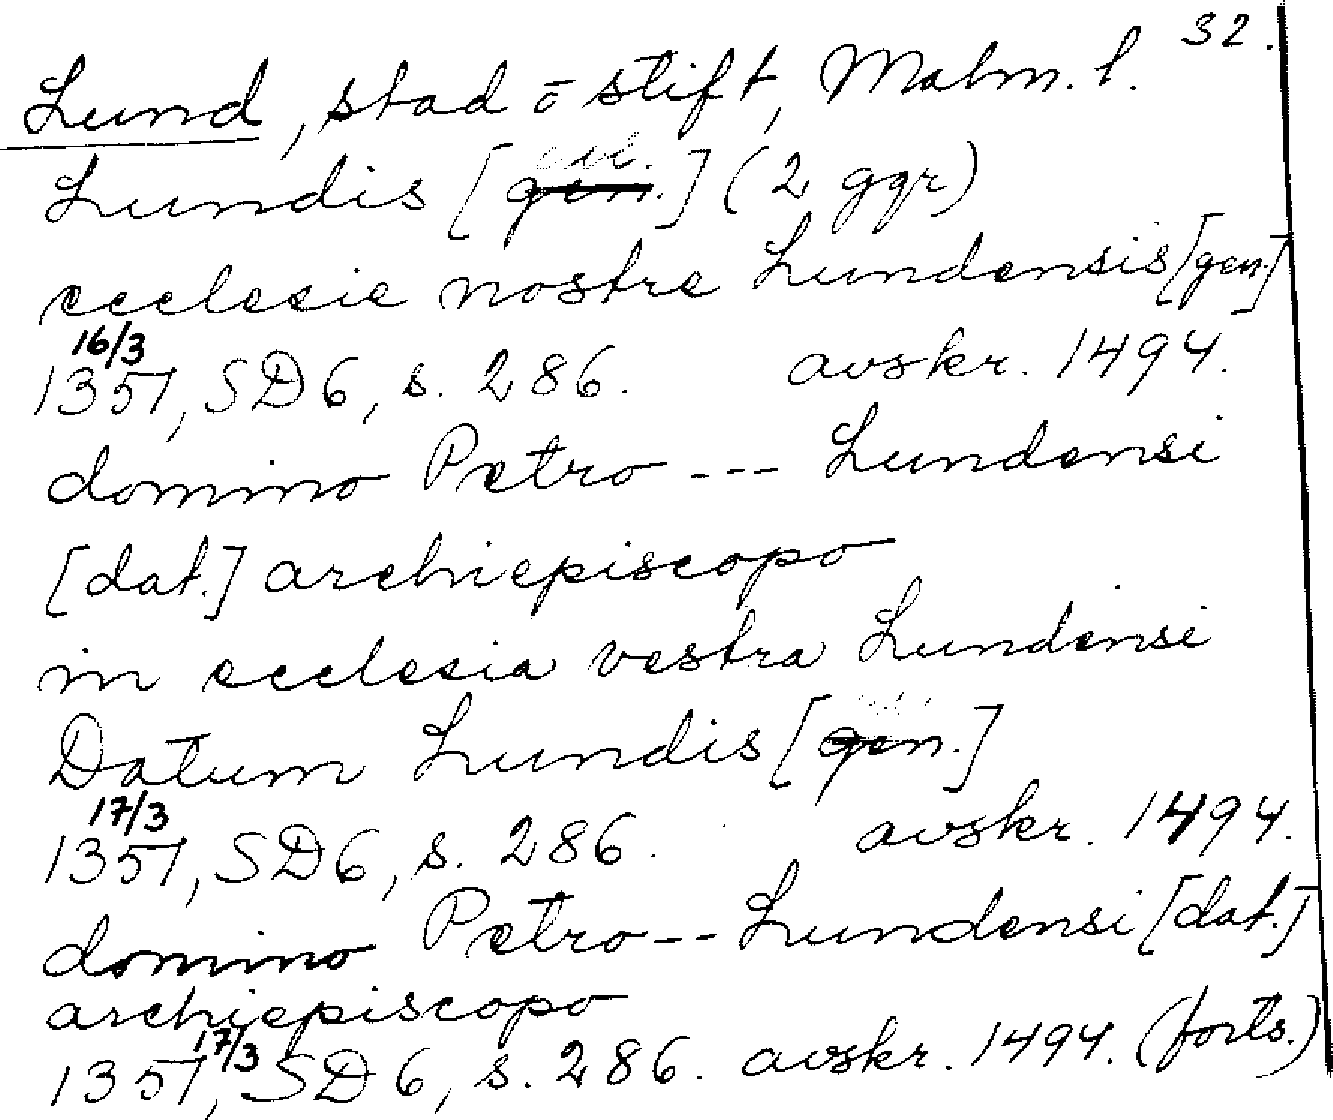 32.
Lund, stad o stift, Malm. l.
Lundis [gen.] (2 ggr)
ecclesie nostre Lundensis [gen.]
16/3
1357, SD 6, s. 286. avskr. 1494.
domino Petro --- Lundensi
[dat.] archiepiscopo
in ecclesia vestra Lundensi
Datum Lundis [gen.]
17/3
1357, SD 6, s. 286. avskr. 1494.
domino Petro -- Lundensi [dat.]
archiepiscopo
17/3
1357, SD 6, s. 286. avskr. 1494. (forts.)